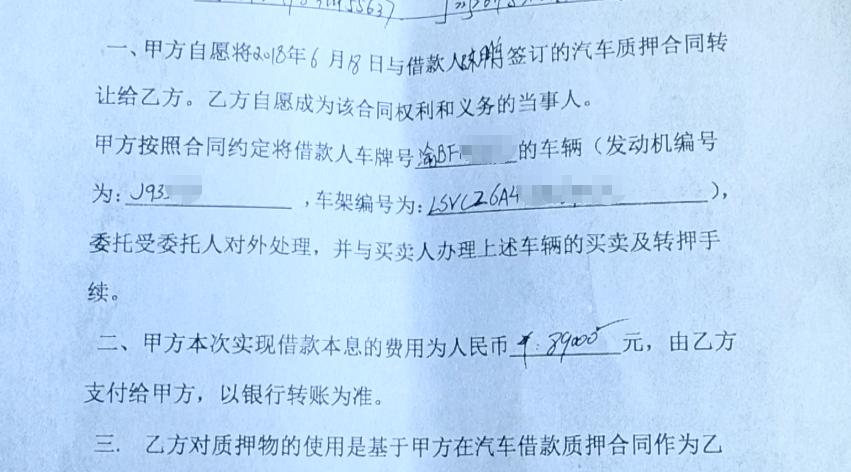 一、甲方自愿将2018年6月18日与借款人陈鹏签订的汽车质押合同转
让给乙方。乙方自愿成为该合同权利和义务的当事人。
甲方按照合同约定将借款人车牌号渝BF的车辆（发动机编号
为：J93，车架编号为：LSVCZ6A4），
委托受委托人对外处理，并与买卖人办理上述车辆的买卖及转押手
续。
二、甲方本次实现借款本息的费用为人民币¥：39000元，由乙方
支付给甲方，以银行转账为准。
三. 乙方对质押物的使用是基于甲方在汽车借款质押合同作为乙